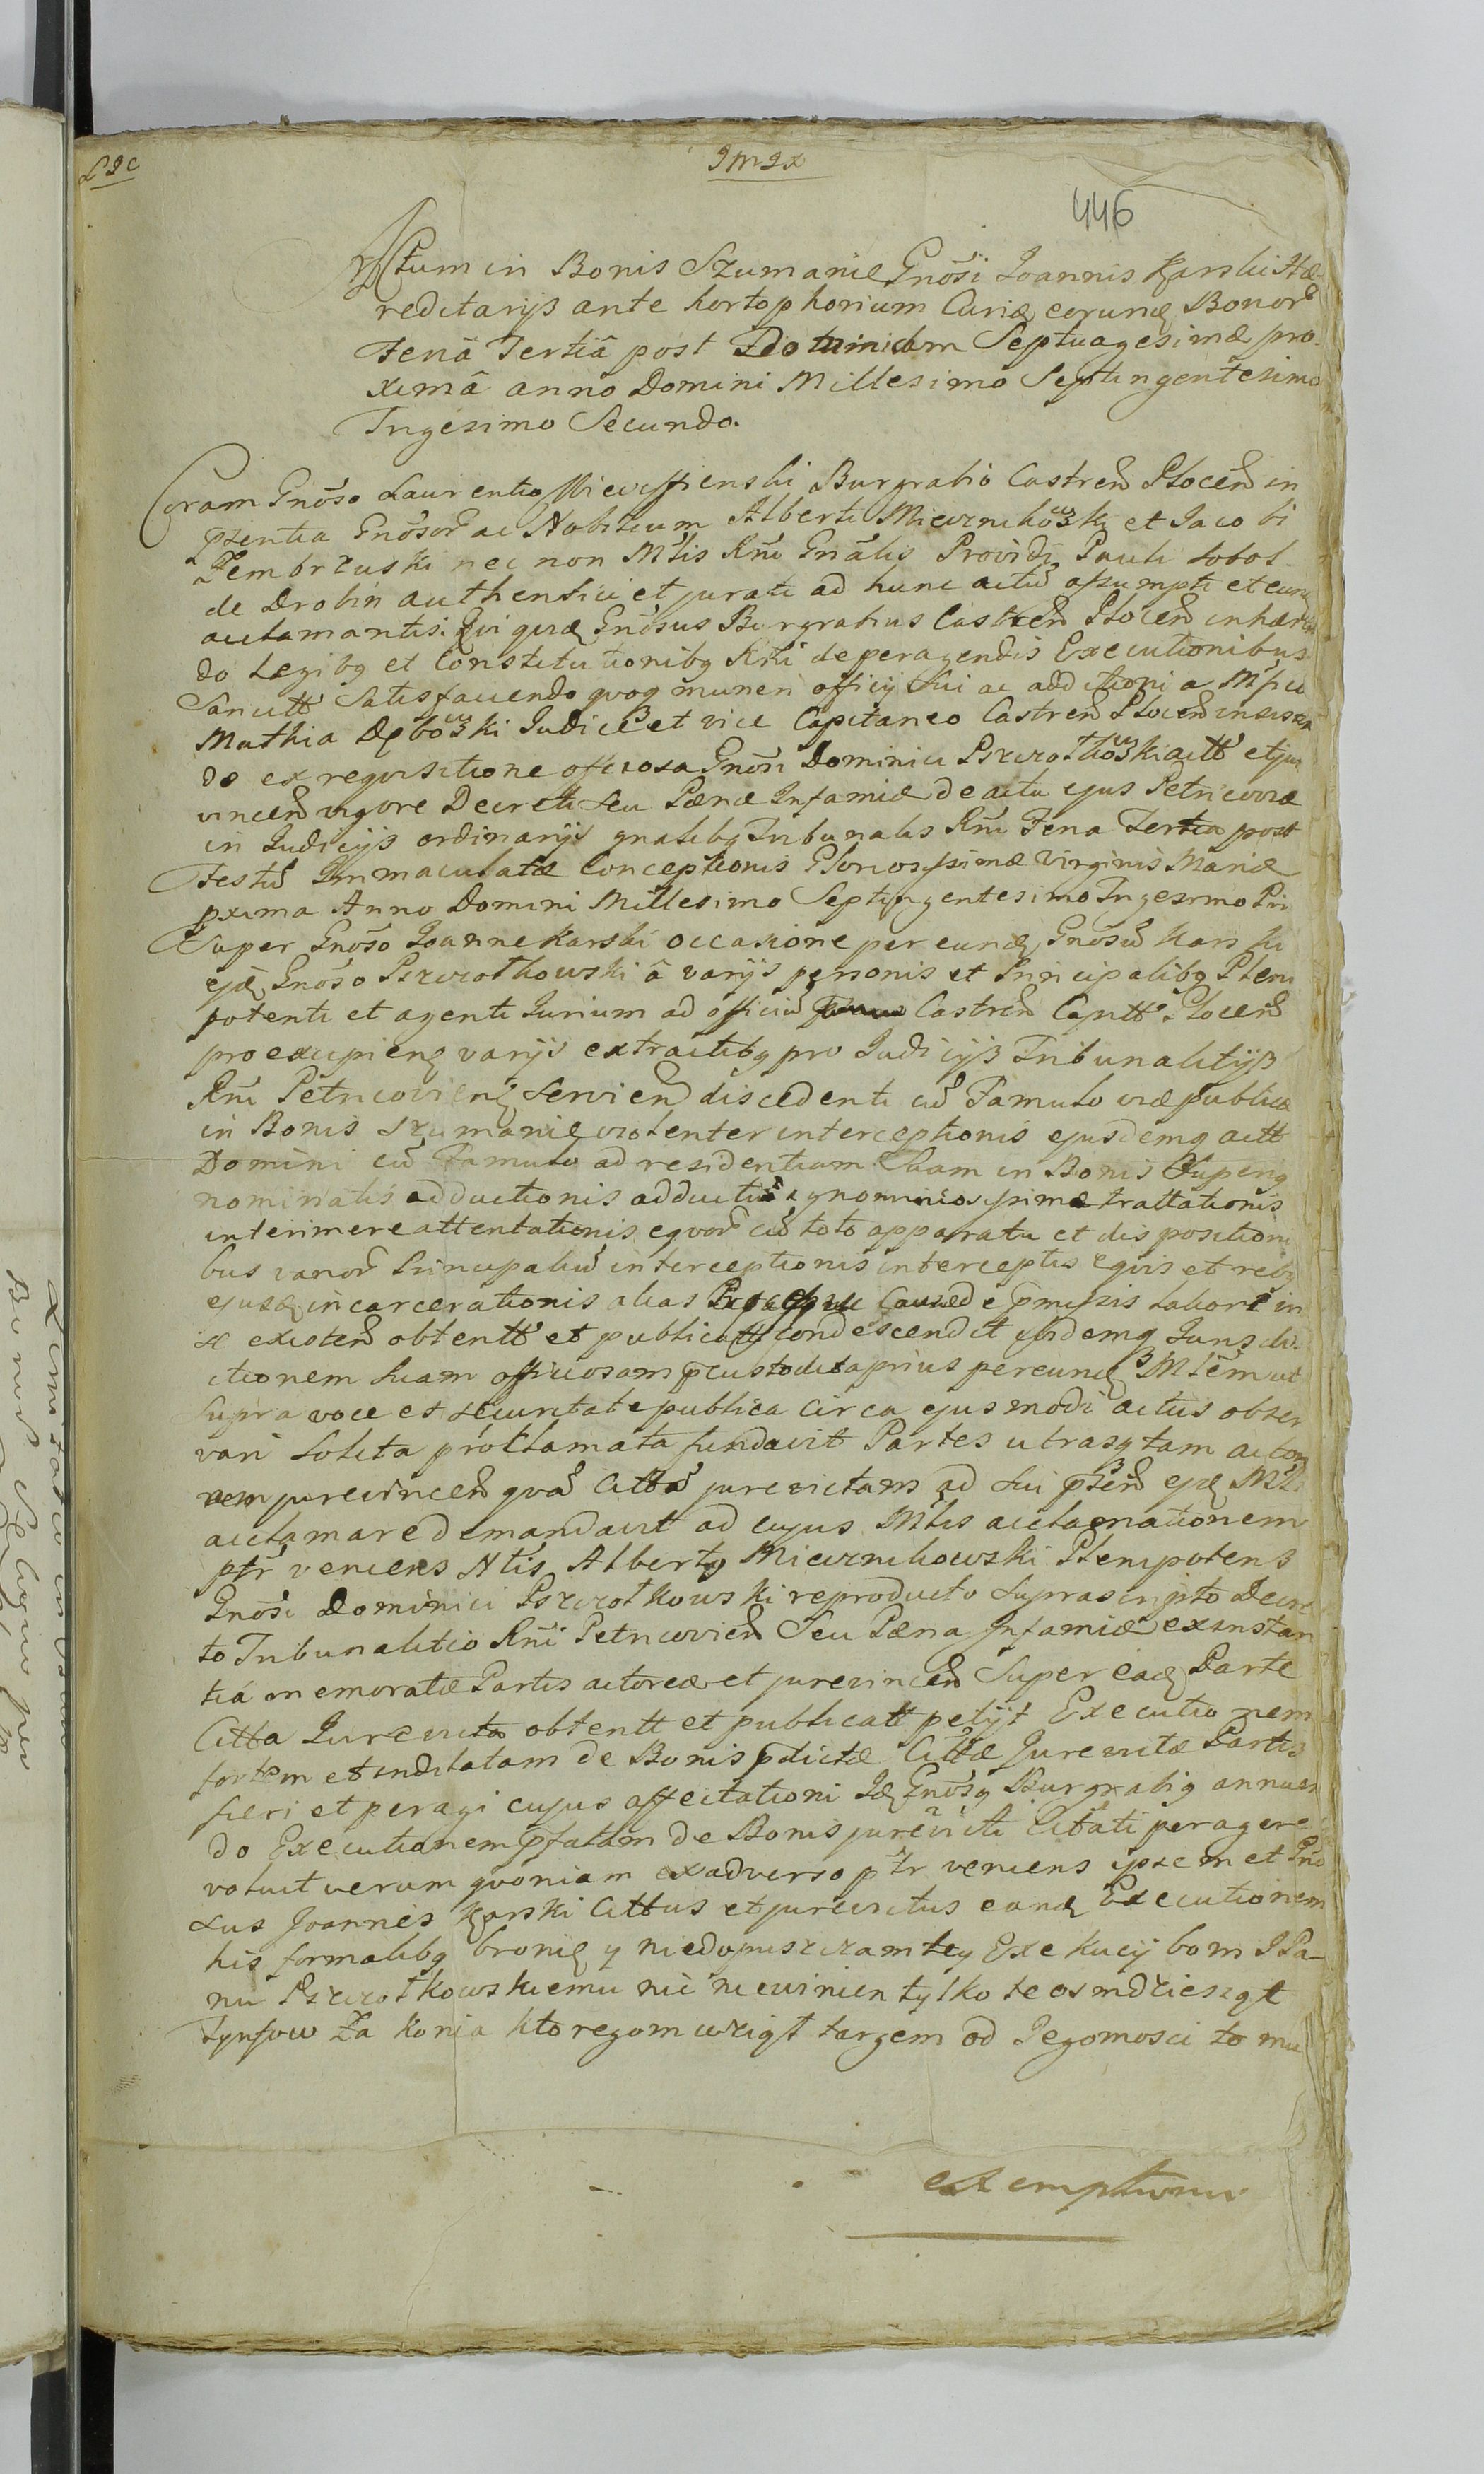 Imgx
446
Actum in Bonis Szumanie Gnosi Joannis Karski Hæ-
reditarijs ante hortophorium Curiæ eorund Bonor
Feriâ Tertiâ post Dominicam Septuagesimæ pro-
ximâ anno Domini Millesimo Septingentesimo
Trigesimo Secundo.
Coram Gnõso Laurentio Burgrabio Castreñ Ploceñ in
pẑentia Gnõsor ac Nobilium Alberti Miercznikowski et Jacobi
Zembrzuski nec non Mĩlis Rñi Gnãlis Providi Pauli Sobol
de Drobin authentici et jurati ad hunc actũ assumpti et eund
acclamantis. Qui quid Gnõsus Burgrabius Castreñ Ploceñ inhæren
do Legibq et Constitutionibq Rñi de peragendis Executionibus
Sancitt Satisfaciendo quoq muneri officij Sui ac additioni a Mfico
Mathia Dębowski Judice et vice Capitaneo Castreñ Ploceñ
do ex requisitione officiosa Gnõsi Dominici Pszczołkowski actt et ju
vinceñ vigore Decreti seu Pænæ Infamiæ de actu ejus Petricoviæ
in Judicijs ordinarijs gnalibq Tribunalis Rñi Feria Tertia post
Festũ Immaculatæ Conceptionis Gloriosissimæ Virginis Mariæ
pxima Anno Domini Millesimo Septingentesimo Trigesimo Pri
Super Gnõso Joanne Karski occasione per eund Gnõsũ Karski
ejd Gnõso Pszczołkowski â varijs personis et Principalibq Pleni
potenti et agenti Jurium ad officiũ Castreñ Capitt Ploceñ
pro excipiend varijs extractibq pro Judicijs Tribunalitijs
Rñi Petricovieñ Servieñ discedenti cũ Famulo viæ publicæ
in Bonis Szumanie violenter interceptionis ejusdemq actt
Domini cũ Famulo ad residentiam Suam in Bonis Superiq
nominatis adductionis adducti ignominiosissimæ trattationis
interimere attentationis eqvor cũ toto apparatu et dispositioni
bus varior Principaliũ interceptionis interceptis eqvis et rebq
ejusd incarcerationis alias Processu Causæ de præmissis latiori in
se existeñ obtentt et publicatt condescendit ibidemq Jurisdi
ctionem suam officiosam p custodita prius per eund Mlem ut
supra voce et securitate publica circa ejusmodi actus obser
vari solita proklamata fundavit Partes utrasq tam acto
rem jurevinceñ quã Cittã jurevictam ad sui pẑeñ ejd Mli
acclamare demandavit ad cujus Mĩlis acclamationem
pĩr veniens Nlis Albertq Miercznikowski Plenipotens
Gnõsi Dominici Pszczołkowski reproducto suprascripto Decre
to Tribunalitio Rñi Petricovieñ Seu Pæna Infamiæ ex instan
tiâ memoratæ Partis actoreæ et jurevinceñ Super ead Parte
Citta Jurevicta obtentt et publicatt petijt Executionem
fortem et indilatam de Bonis pdictæ Cittæ Jurevictæ Partis
fieri et peragi cujus affectationi Id Gnõsq Burgrabiq annuen
do Executionem pfatam de Bonis jurevicti Citati peragere
voluit verum quoniam ex adverso pĩr veniens ipsemet Gno
sus Joannes Karski Cittus et jurevictus eand Executionem
his formalibq bronię y niedopuszczam tey Exekucij bom J Pa-
nu Pszczołkowskiemu nic niewinien tylko te osmdziesząt
Tynfow Za konia ktoregom wziął targem od Jegomosci to mu
exemptum